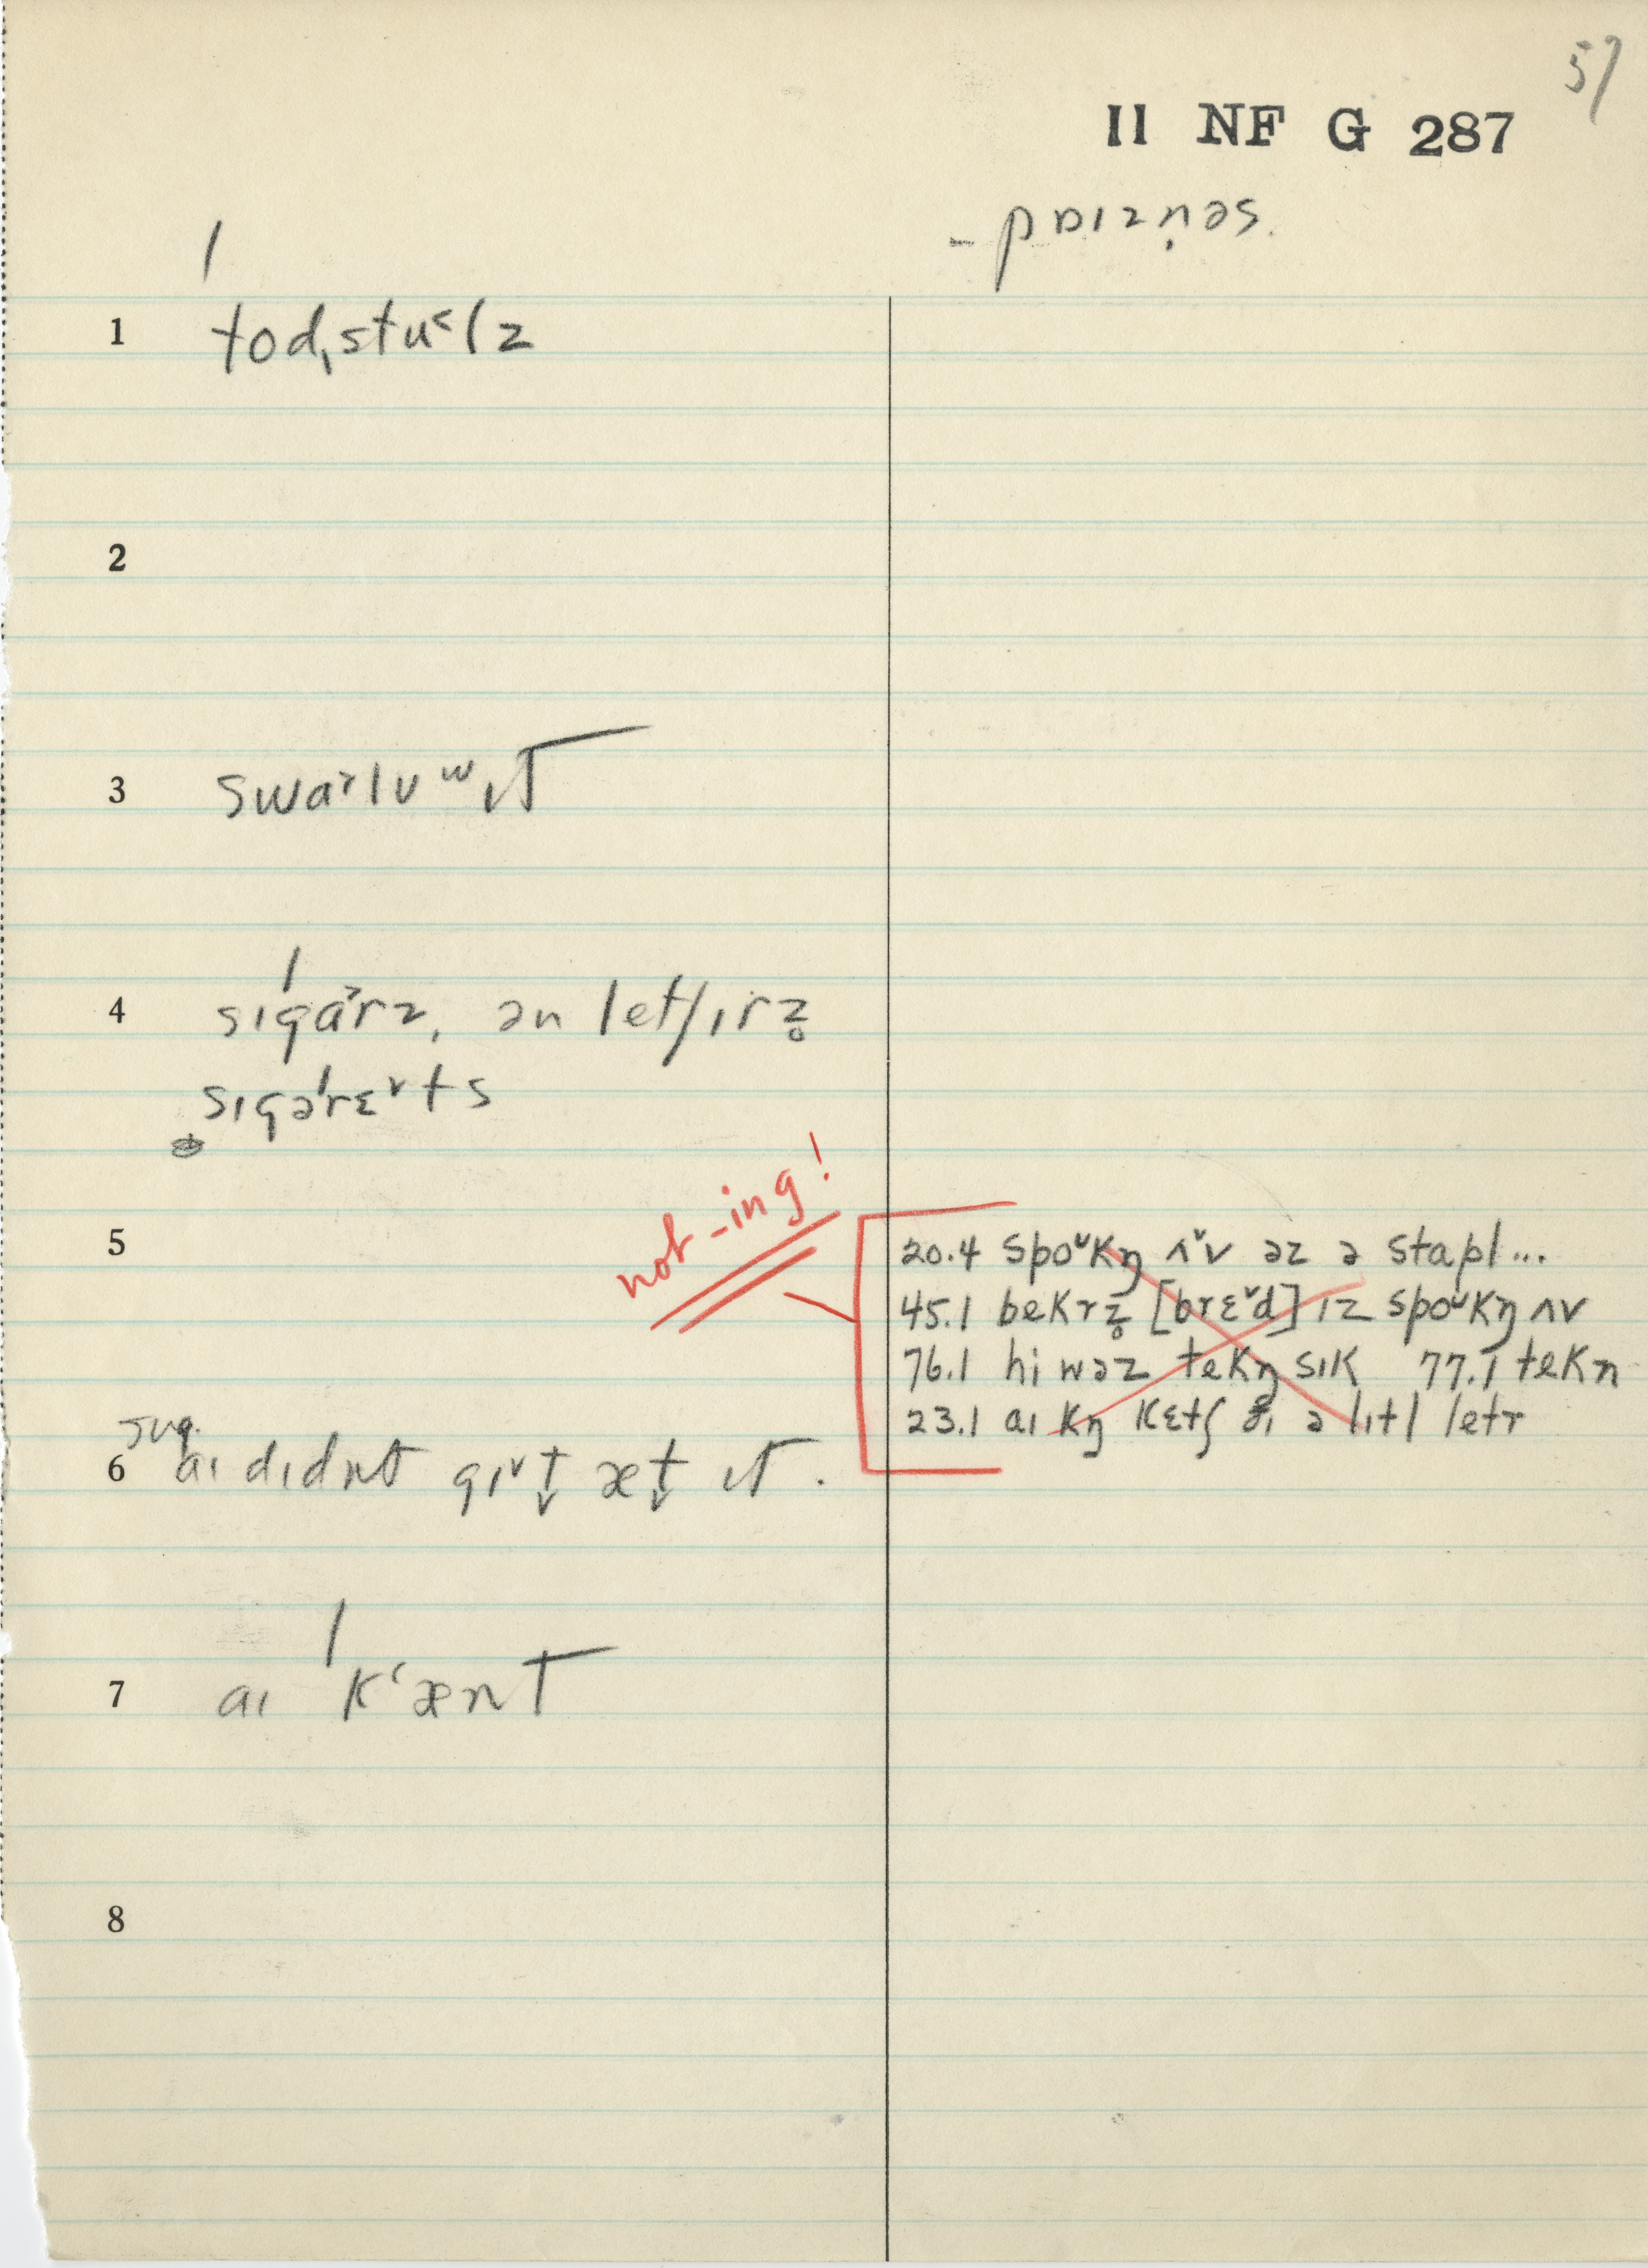 57
II NF G 287
- pɒɪzn̩əs.
1 todɪstu˂lz
3 swa˃lʊʷɪt
4 sɪgá˃rz, ən letʃɪrz̥
sɪgəréᵛts
not -ing!
5
20.4 spoᵘkŋ ʌᵛv əz ə stapl...
45.1 bekrz̥ [brɛᵛd] ɪz spoᵘkŋ ʌv
76.1 hi wəz tekŋ sɪk 77.1 tekn
23.1 aɪ kŋ kɛtʃ ðɪ ə lɪtl letr
sug.
6 aɪ dɪdnt gɪᵛt̬ æt̬ ɪt.
7 aɪ kʻænt
2
8